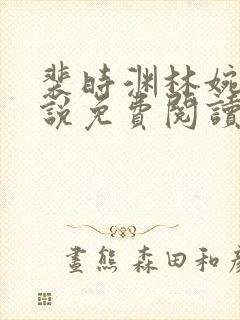 裴時渊林婉
說免費閱讀
畫熊 森田和彥